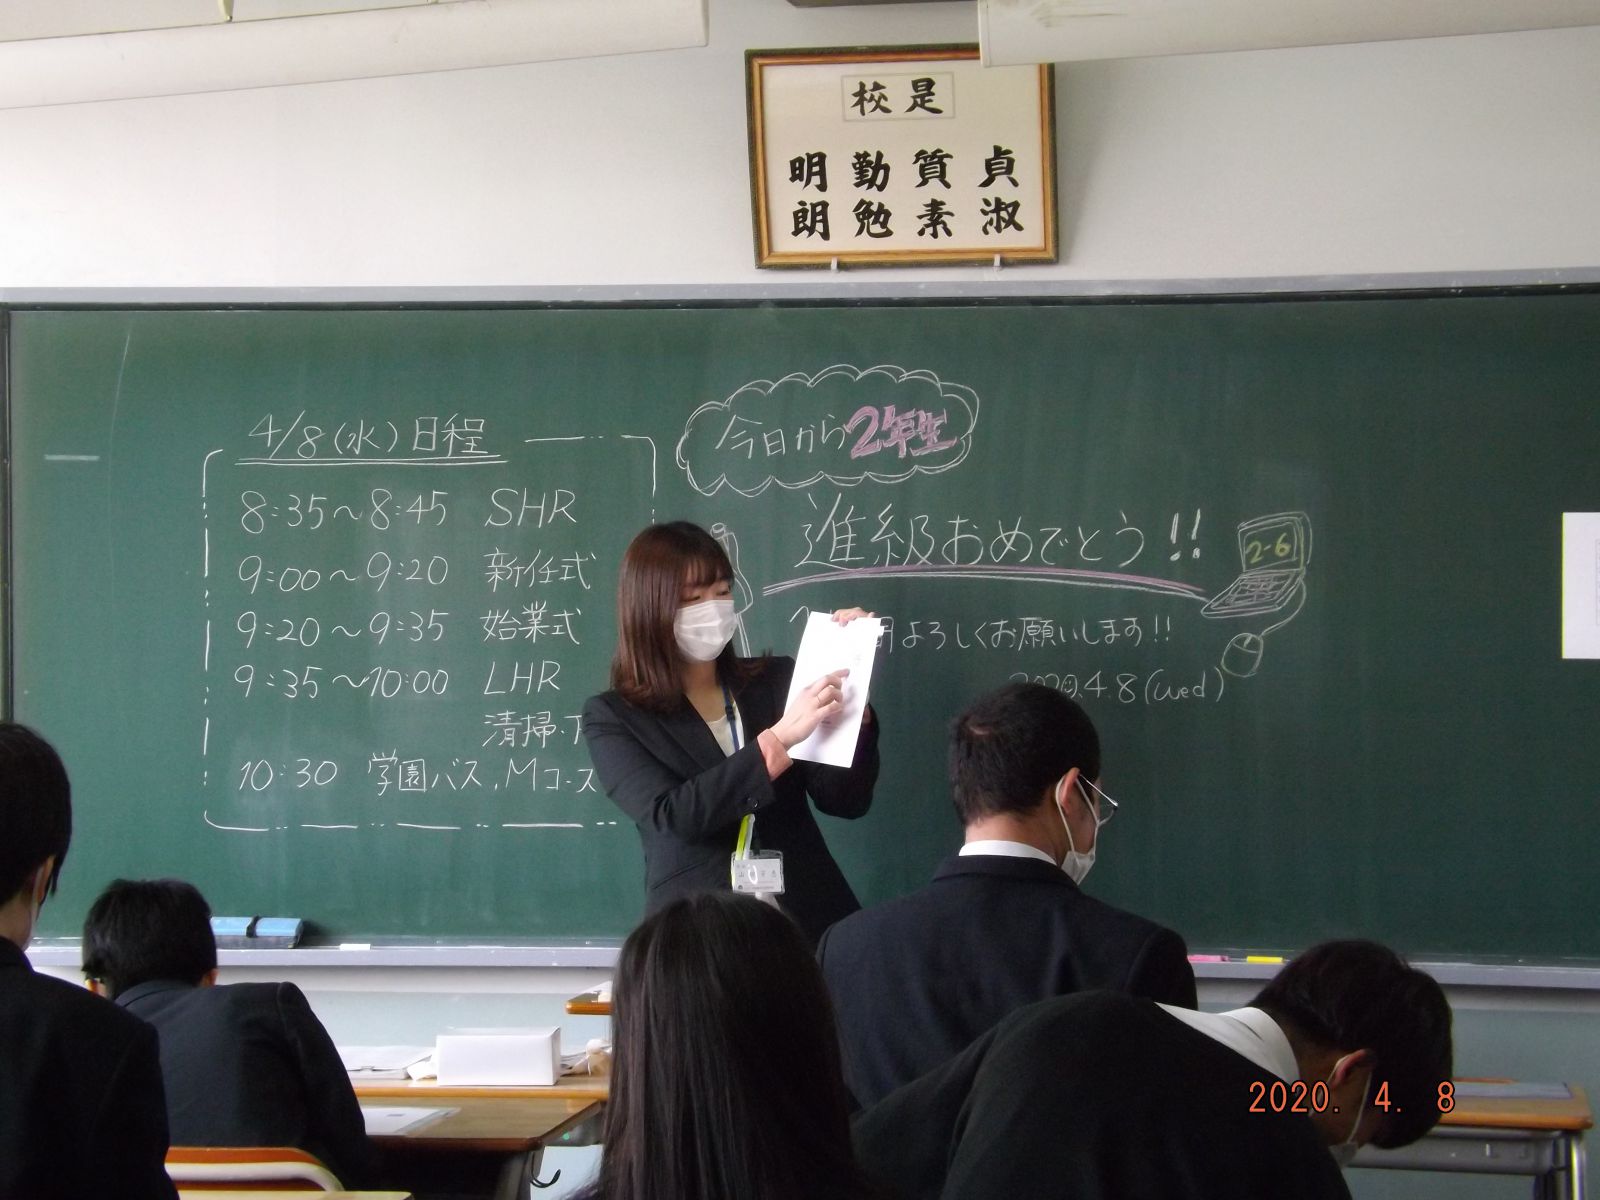 校是
明朗 勤勉 質素 貞淑
4/8(水)日程
8:35～8:45 SHR
9:00～9:20 新任式
9:20～9:35 始業式
9:35～10:00 LHR
清掃・
10:30 学園バス,Mコース
今日から2年生
進級おめでとう!!
よろしくお願いします!!
4.8(wed)
2-6
2020. 4. 8